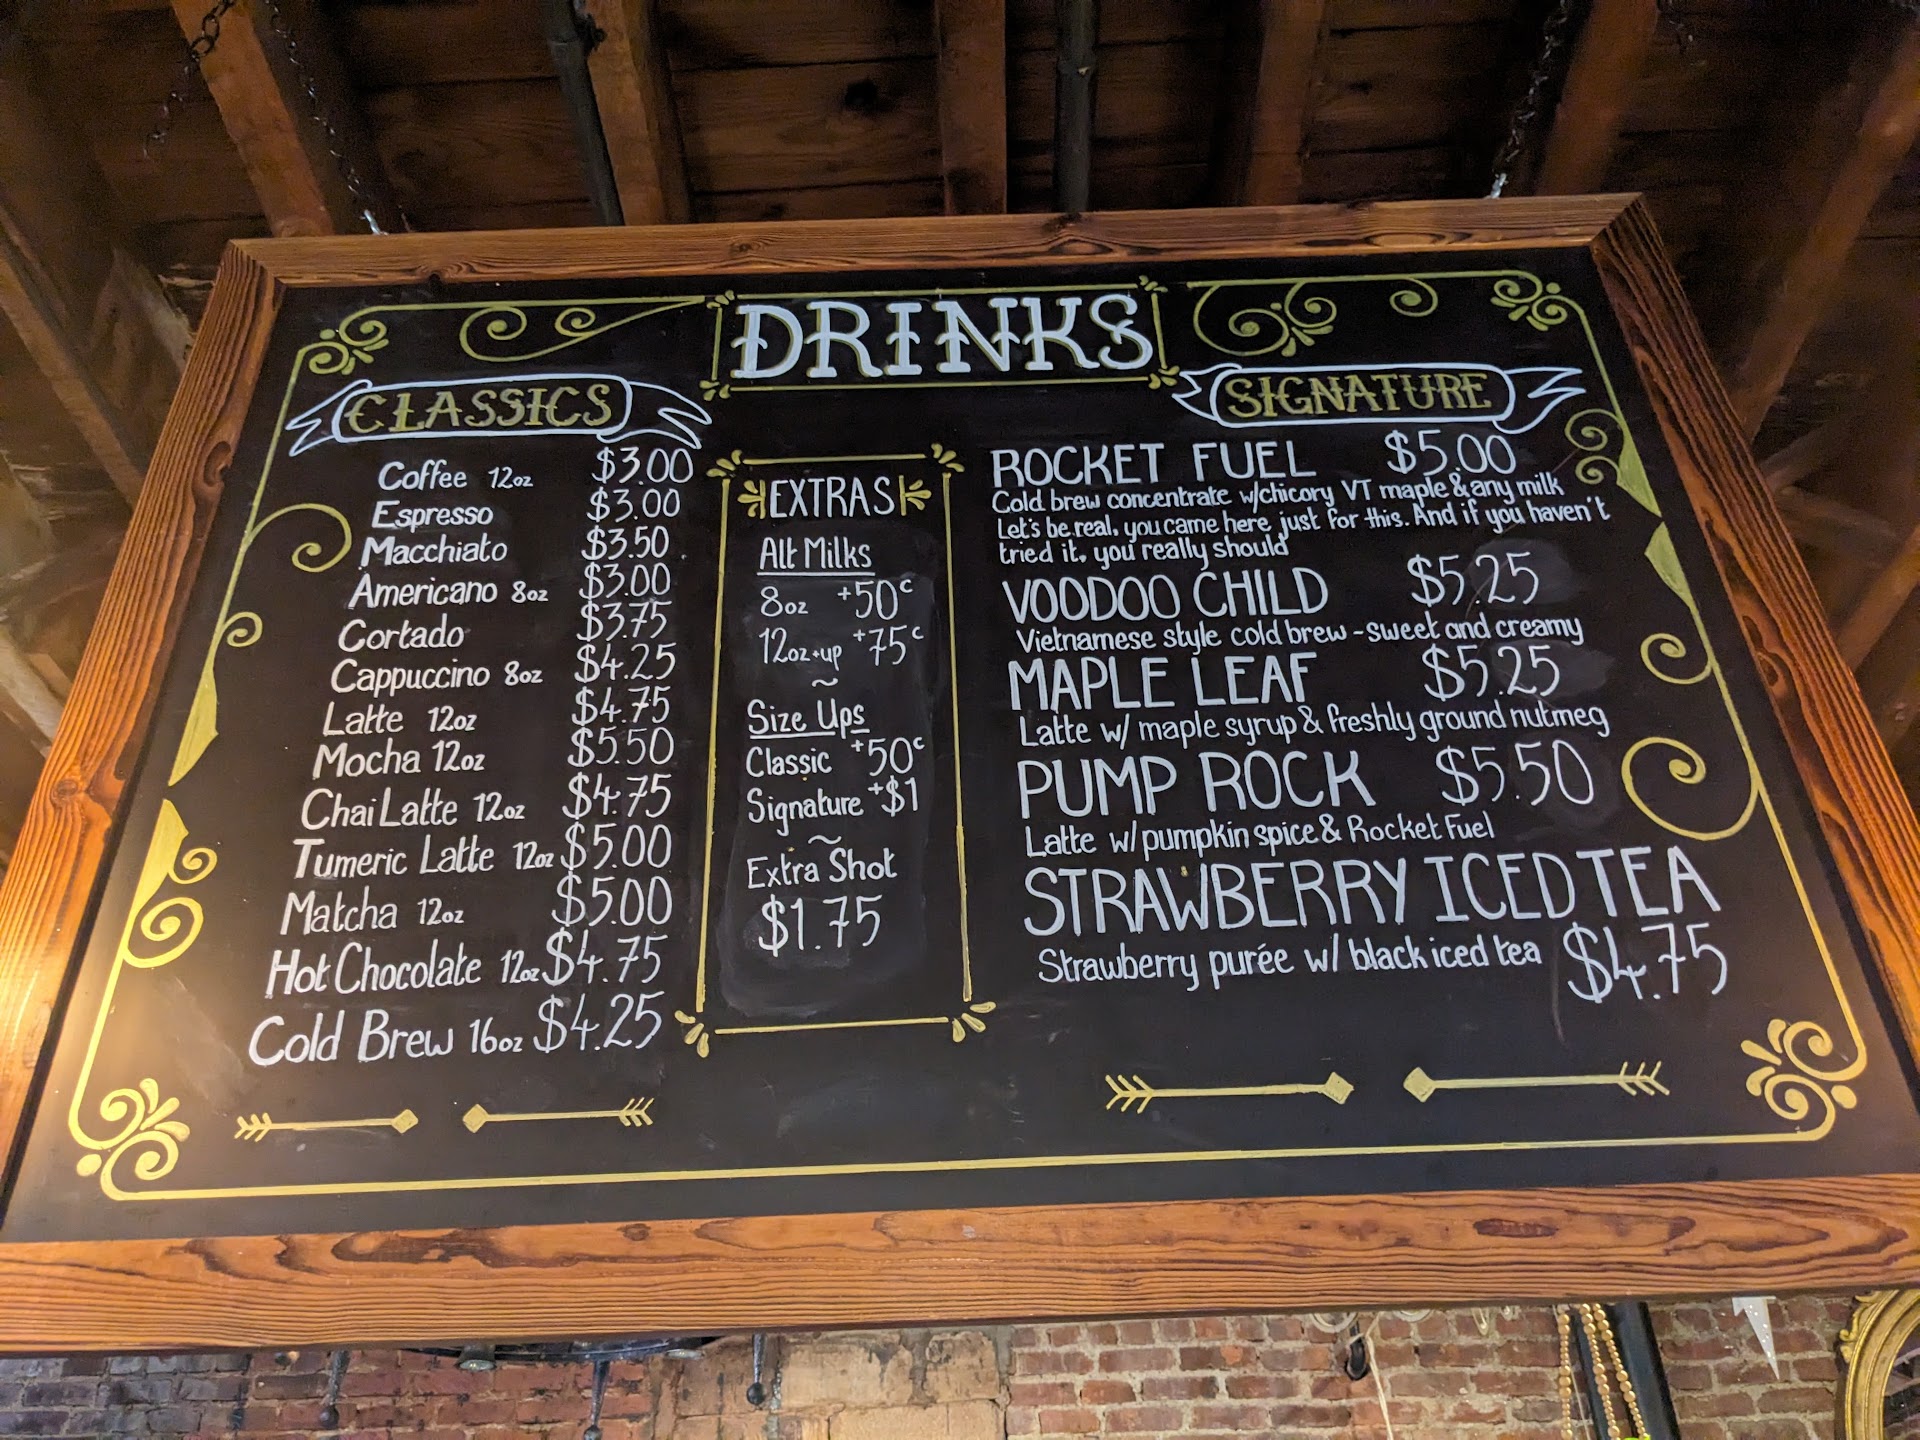 DRINKS
CLASSICS
Coffee 12oz $3.00
Espresso $3.00
Macchiato $3.50
Americano 8oz $3.00
Cortado $3.75
Cappuccino 8oz $4.25
Latte 12oz $4.75
Mocha 12oz $5.50
Chai Latte 12oz $4.75
Tumeric Latte 12oz $5.00
Matcha 12oz $5.00
Hot Chocolate 12oz $4.75
Cold Brew 16oz $4.25
EXTRAS
Alt Milks
8oz +50c
12oz+up +75c
~
Size Ups
Classic +50c
Signature +$1
~
Extra Shot
$1.75
SIGNATURE
ROCKET FUEL $5.00
Cold brew concentrate w/chicory VT maple & any milk
Let's be real, you came here just for this. And if you haven't
tried it, you really should
VOODOO CHILD $5.25
Vietnamese style cold brew - sweet and creamy
MAPLE LEAF $5.25
Latte w/ maple syrup & freshly ground nutmeg
PUMP ROCK $5.50
Latte w/ pumpkin spice & Rocket Fuel
STRAWBERRY ICED TEA
Strawberry purée w/ black iced tea $4.75